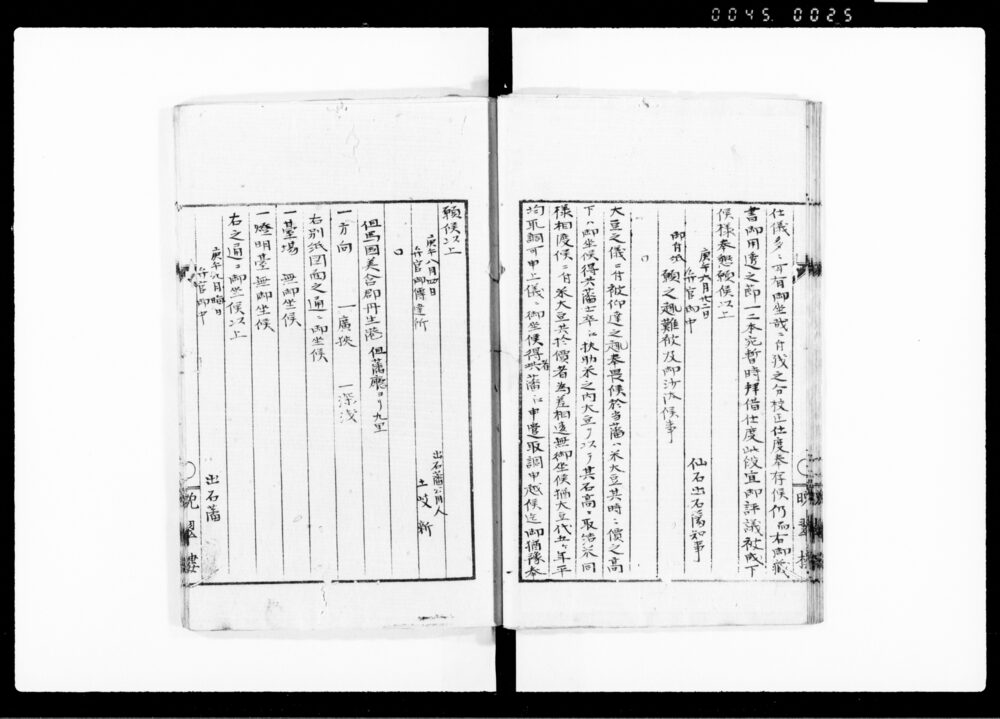 0045 0025
仕儀多々可有御坐哉ニ付我之分校正仕度奉存候仍而右御蔵
書御用透之節一二本宛暫時拝借仕度此段宜御評議被成下
候様奉懇願候以上
庚午六月廿二日
弁官御中
仙石出石藩知事
御付紙 願之趣難被及御沙汰候事
大豆之儀ニ付被仰達之趣奉畏候於当藩ハ米大豆共時々價之高
下ハ御坐候得共藩士卒江扶助米之内大豆ヲ以ヲ其石高ヲ取結米同
様相渡候ニ付米大豆共於價者為差相違無御坐候猶大豆代五ヶ年平
均取調可申上儀ニ御坐候得共藩江申遣取調申越候迄御猶豫奉
願候以上
庚午八月四日
弁官御傳達所
出石藩公用人
土岐新
但馬國美含郡丹生港 但藩廳ヨリ九里
一方向 一廣狭 一深浅
右別紙図面之通ニ御坐候
一臺場 無御坐候
一燈明臺 無御坐候
右之通ニ御坐候以上
庚午九月晦日
弁官御中
出石藩
晩翠樓